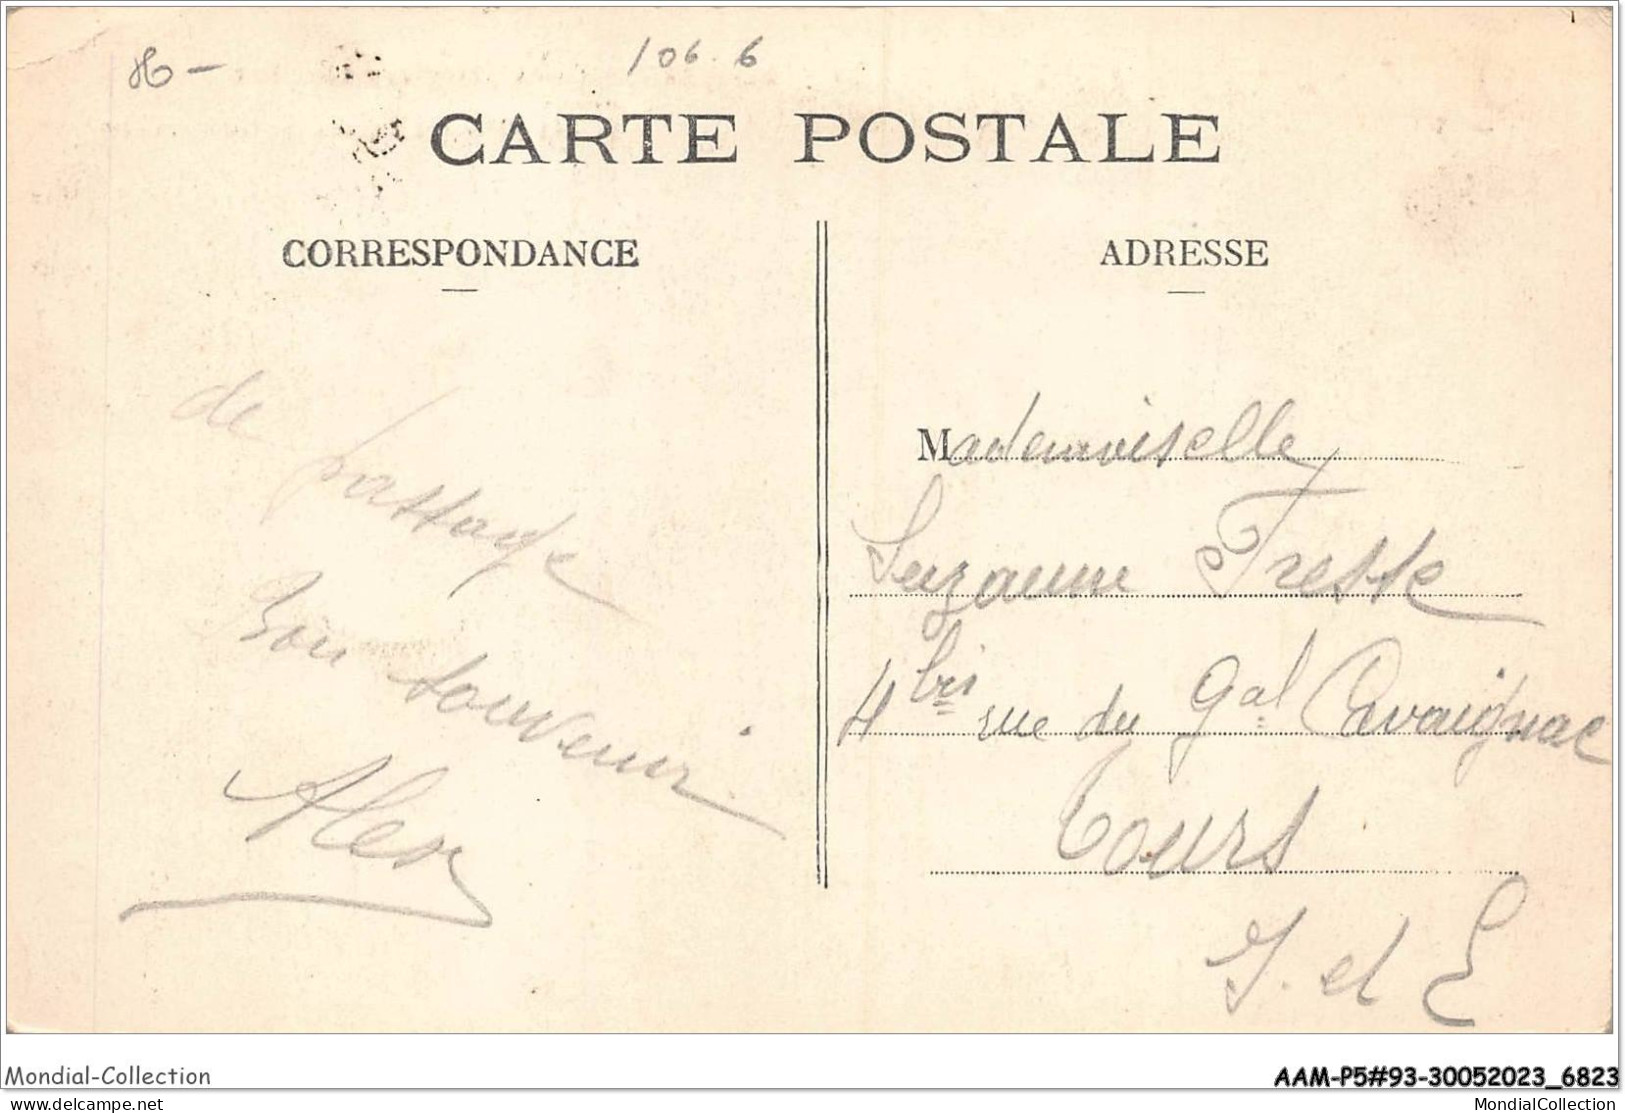 106.6
CARTE POSTALE
CORRESPONDANCE
de passage
Bon souvenir
Alex
ADRESSE
Mademoiselle
Suzanne Treste
4 bis rue du Gal Cavaignac
Tours
I. et L
Mondial-Collection
AAM-P5#93-30052023_6823
www.delcampe.net
MondialCollection